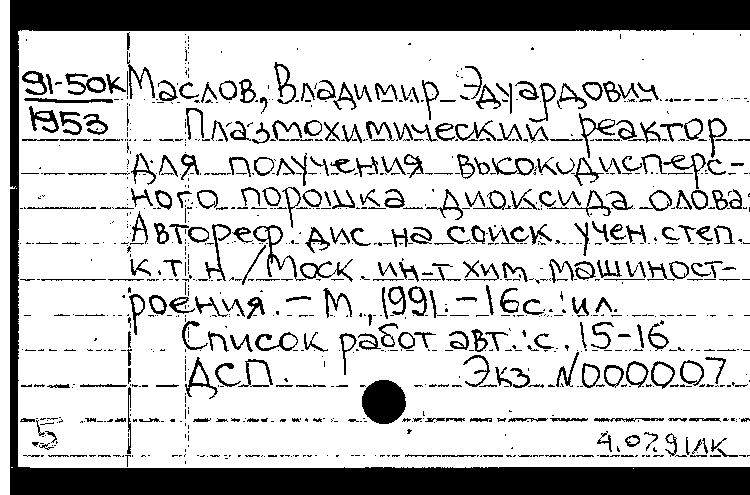 91-50к Маслов, Владимир Эдуардович
1953
Плазмохимический реактор
для получения высокодисперс-
ного порошка диоксида олова:
Автореф. дис. на соиск. учен. степ.
к.т.н. / Моск. ин-т хим. машиност-
роения. - М., 1991. - 16с.: ил.
Список работ авт.: с. 15-16.
ДСП. Экз N000007
5
4.07.91ЛК